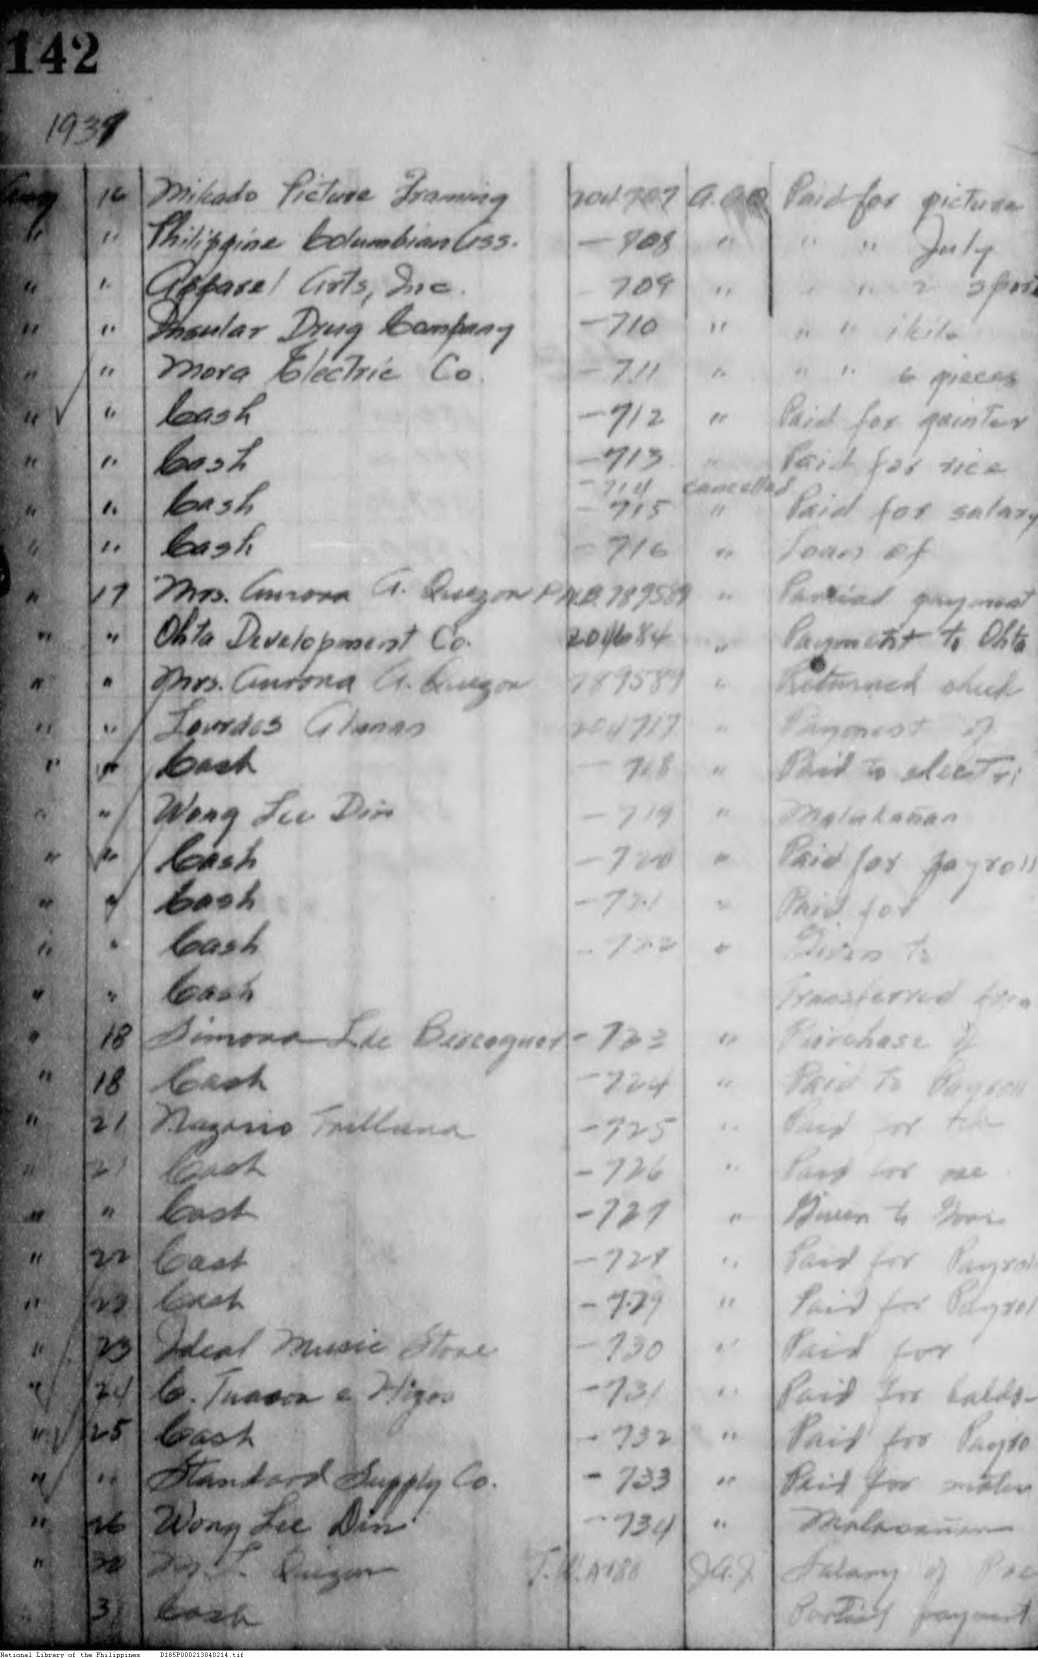 142
1939
Aug 16 Mikado Picture Framing 204707 Paid for picture
" " Philippine Columbian Ass. -708 " " " July
" " Apparel Arts, Inc. -709 " " " 2 sport
" " Insular Drug Company -710 " " "
" " Mora Electric Co. -711 " " " 6 pieces
" " Cash -712 " Paid for painter
" " Cash -713 " Paid for rice
-714 cancelled
" " Cash -715 " Paid for salary
" " Cash -716 " Loan of
" 17 Mrs. Aurora A. Quezon P.N.B. 789589 " Partial payment
" " Ohta Development Co. 204684 " Payment to Ohta
" " Mrs. Aurora A. Quezon 789589 " Returned check
" " Lourdes Alunan 204717 " Payment of
" " Cash -718 " Paid to electri
" " Wong Lee Din -719 " Malakañan
" " Cash -720 " Paid for payroll
" " Cash -721 " Paid for
" " Cash -722 " Given to
" " Cash Transferred from
" 18 Simona Lde -723 " Purchase of
" 18 Cash -724 " Paid to Payroll
" 21 Nazario Trillana -725 " Paid for
" 21 Cash -726 " Paid for one
" " Cash -727 " Given to
" 22 Cash -728 " Paid for Payrol
" 23 Cash -729 " Paid for Payrol
" 23 Ideal Music Store -730 " Paid for
" 24 C. Tuason e Hijos -731 " Paid for
" 25 Cash -732 " Paid for Payro
" " Standard Supply Co. -733 " Paid for mater
" 26 Wong Lee Din -734 " Malacañan
" 30 M. L. Quezon J.A.J. Salary of
31 Cash Partial payment
National Library of the Philippines D185P000213040214.tif